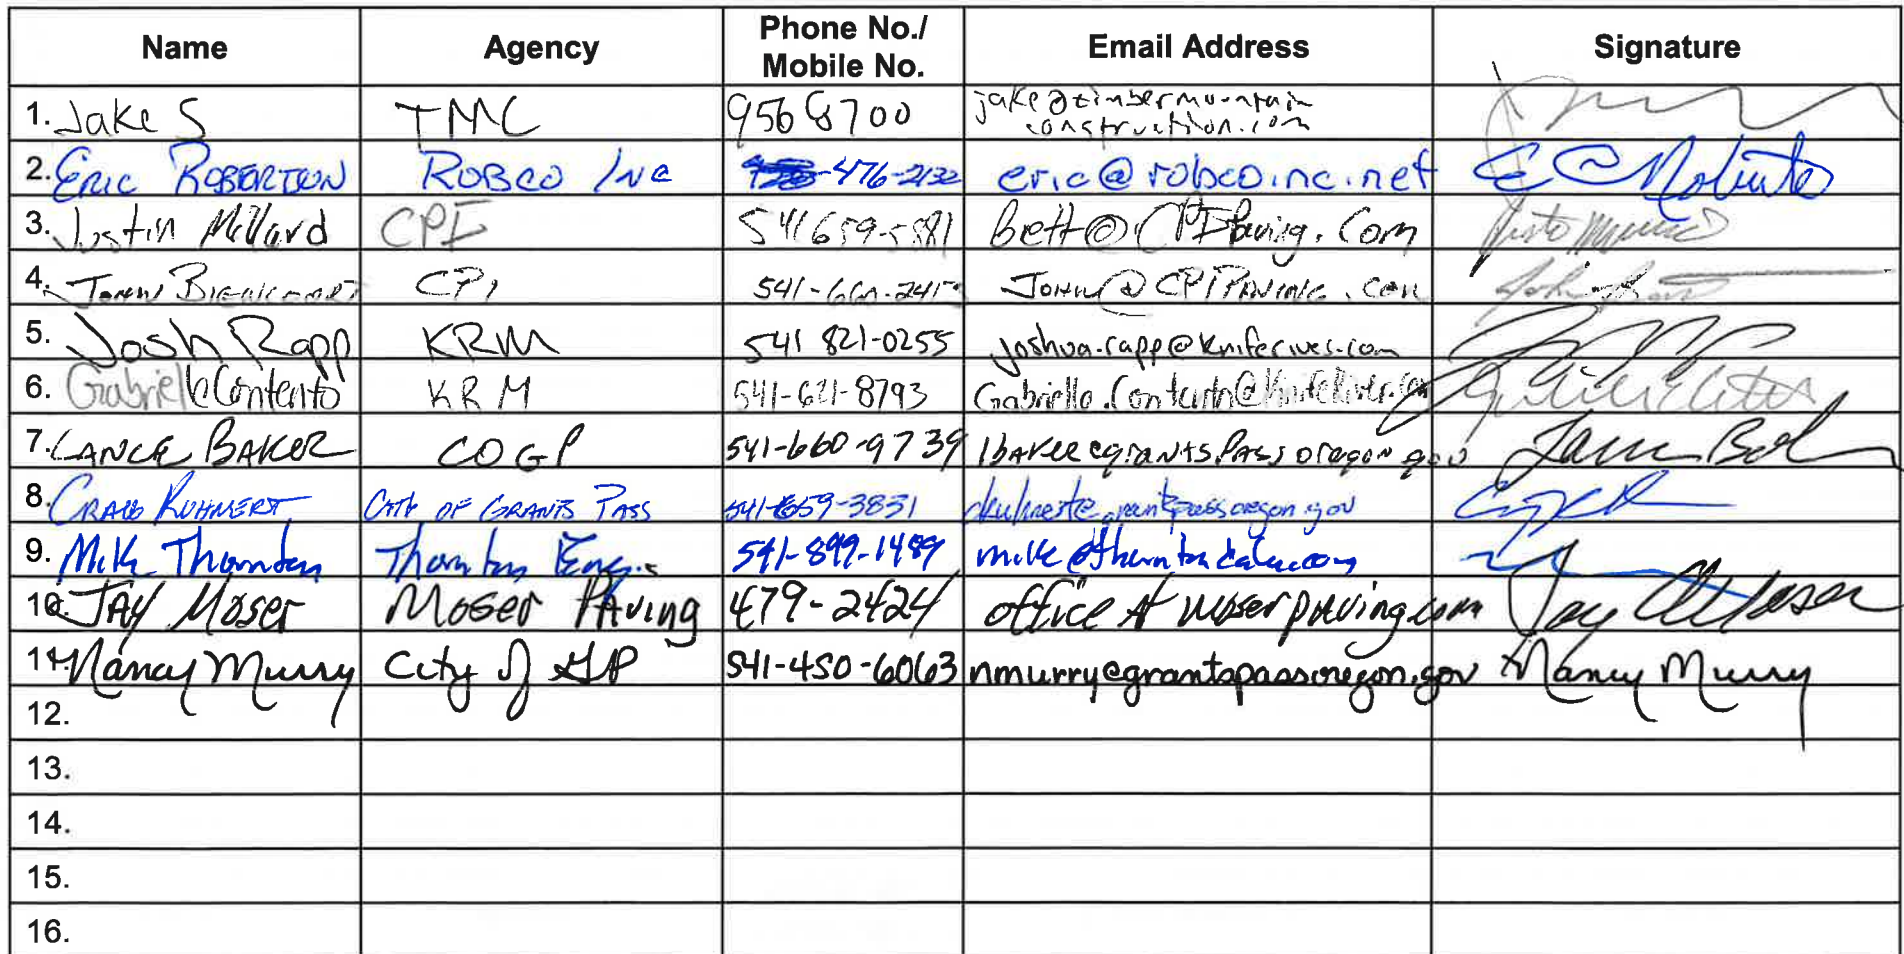 Name Agency Phone No./ Mobile No. Email Address Signature
1. Jake S TMC 956 8700 jake@timbermountain
construction.com
2. ERIC ROBERTSON ROBCO INC -476-2132 eric@robcoinc.net
3. Justin Millard CPI 541 659-5881 Brett@CPIPaving.Com
4. JOHN CPI 541-660-241 JOHN@CPIPAVING.COM
5. Josh Rapp KRM 541 821-0255 Joshua.rapp@kniferiver.com
6. Gabrielle Contento KRM 541-621-8793 Gabrielle.Contento@KnifeRiver.com
7. LANCE BAKER COGP 541-660-9739 lbaker@grantspassoregon.gov
8. CRAIG KUHNERT CITY OF GRANTS PASS 541-659-3831
9. Mike Thornton Thornton Eng. 541-899-1489
10. JAY MOSER MOSER PAVING 479-2424 office At moserpaving.com Jay Moser
11. Nancy Murry City of GP 541-450-6063 nmurry@grantspassoregon.gov Nancy Murry
12.
13.
14.
15.
16.